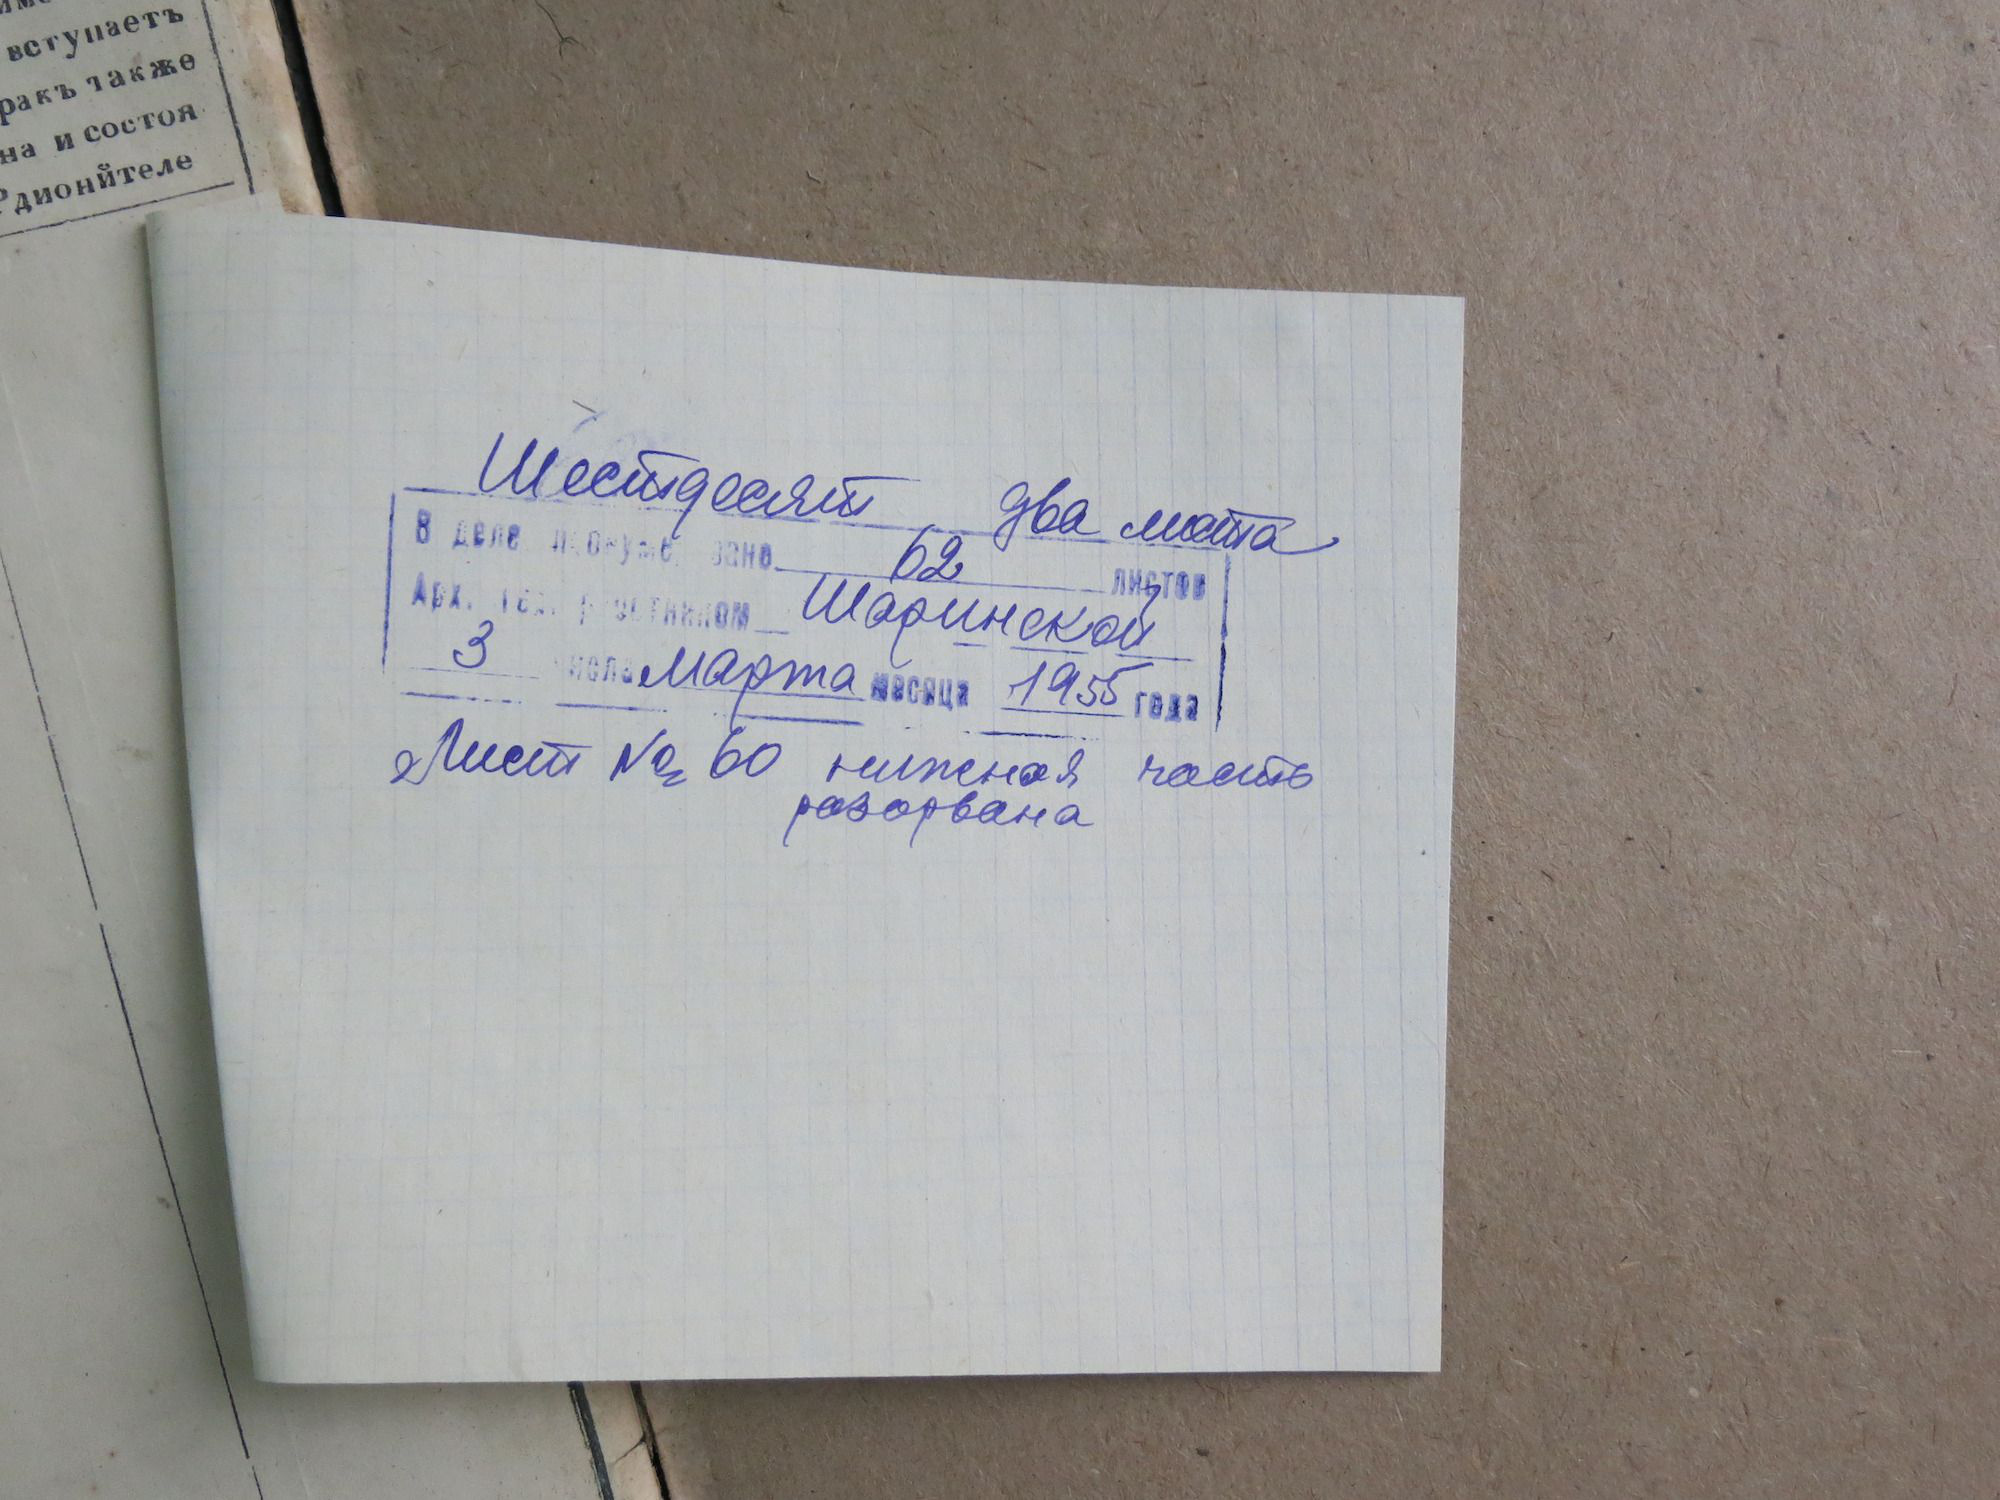 вступаетъ
ракъ также
на и состоя
Рдионйтеле
Шестдесят два листа
В деле пронумеровано 62 листов
Арх. тех. Шаринской
3 числа марта месяца 1955 года
Лист № 60 нижная часть
разорвана